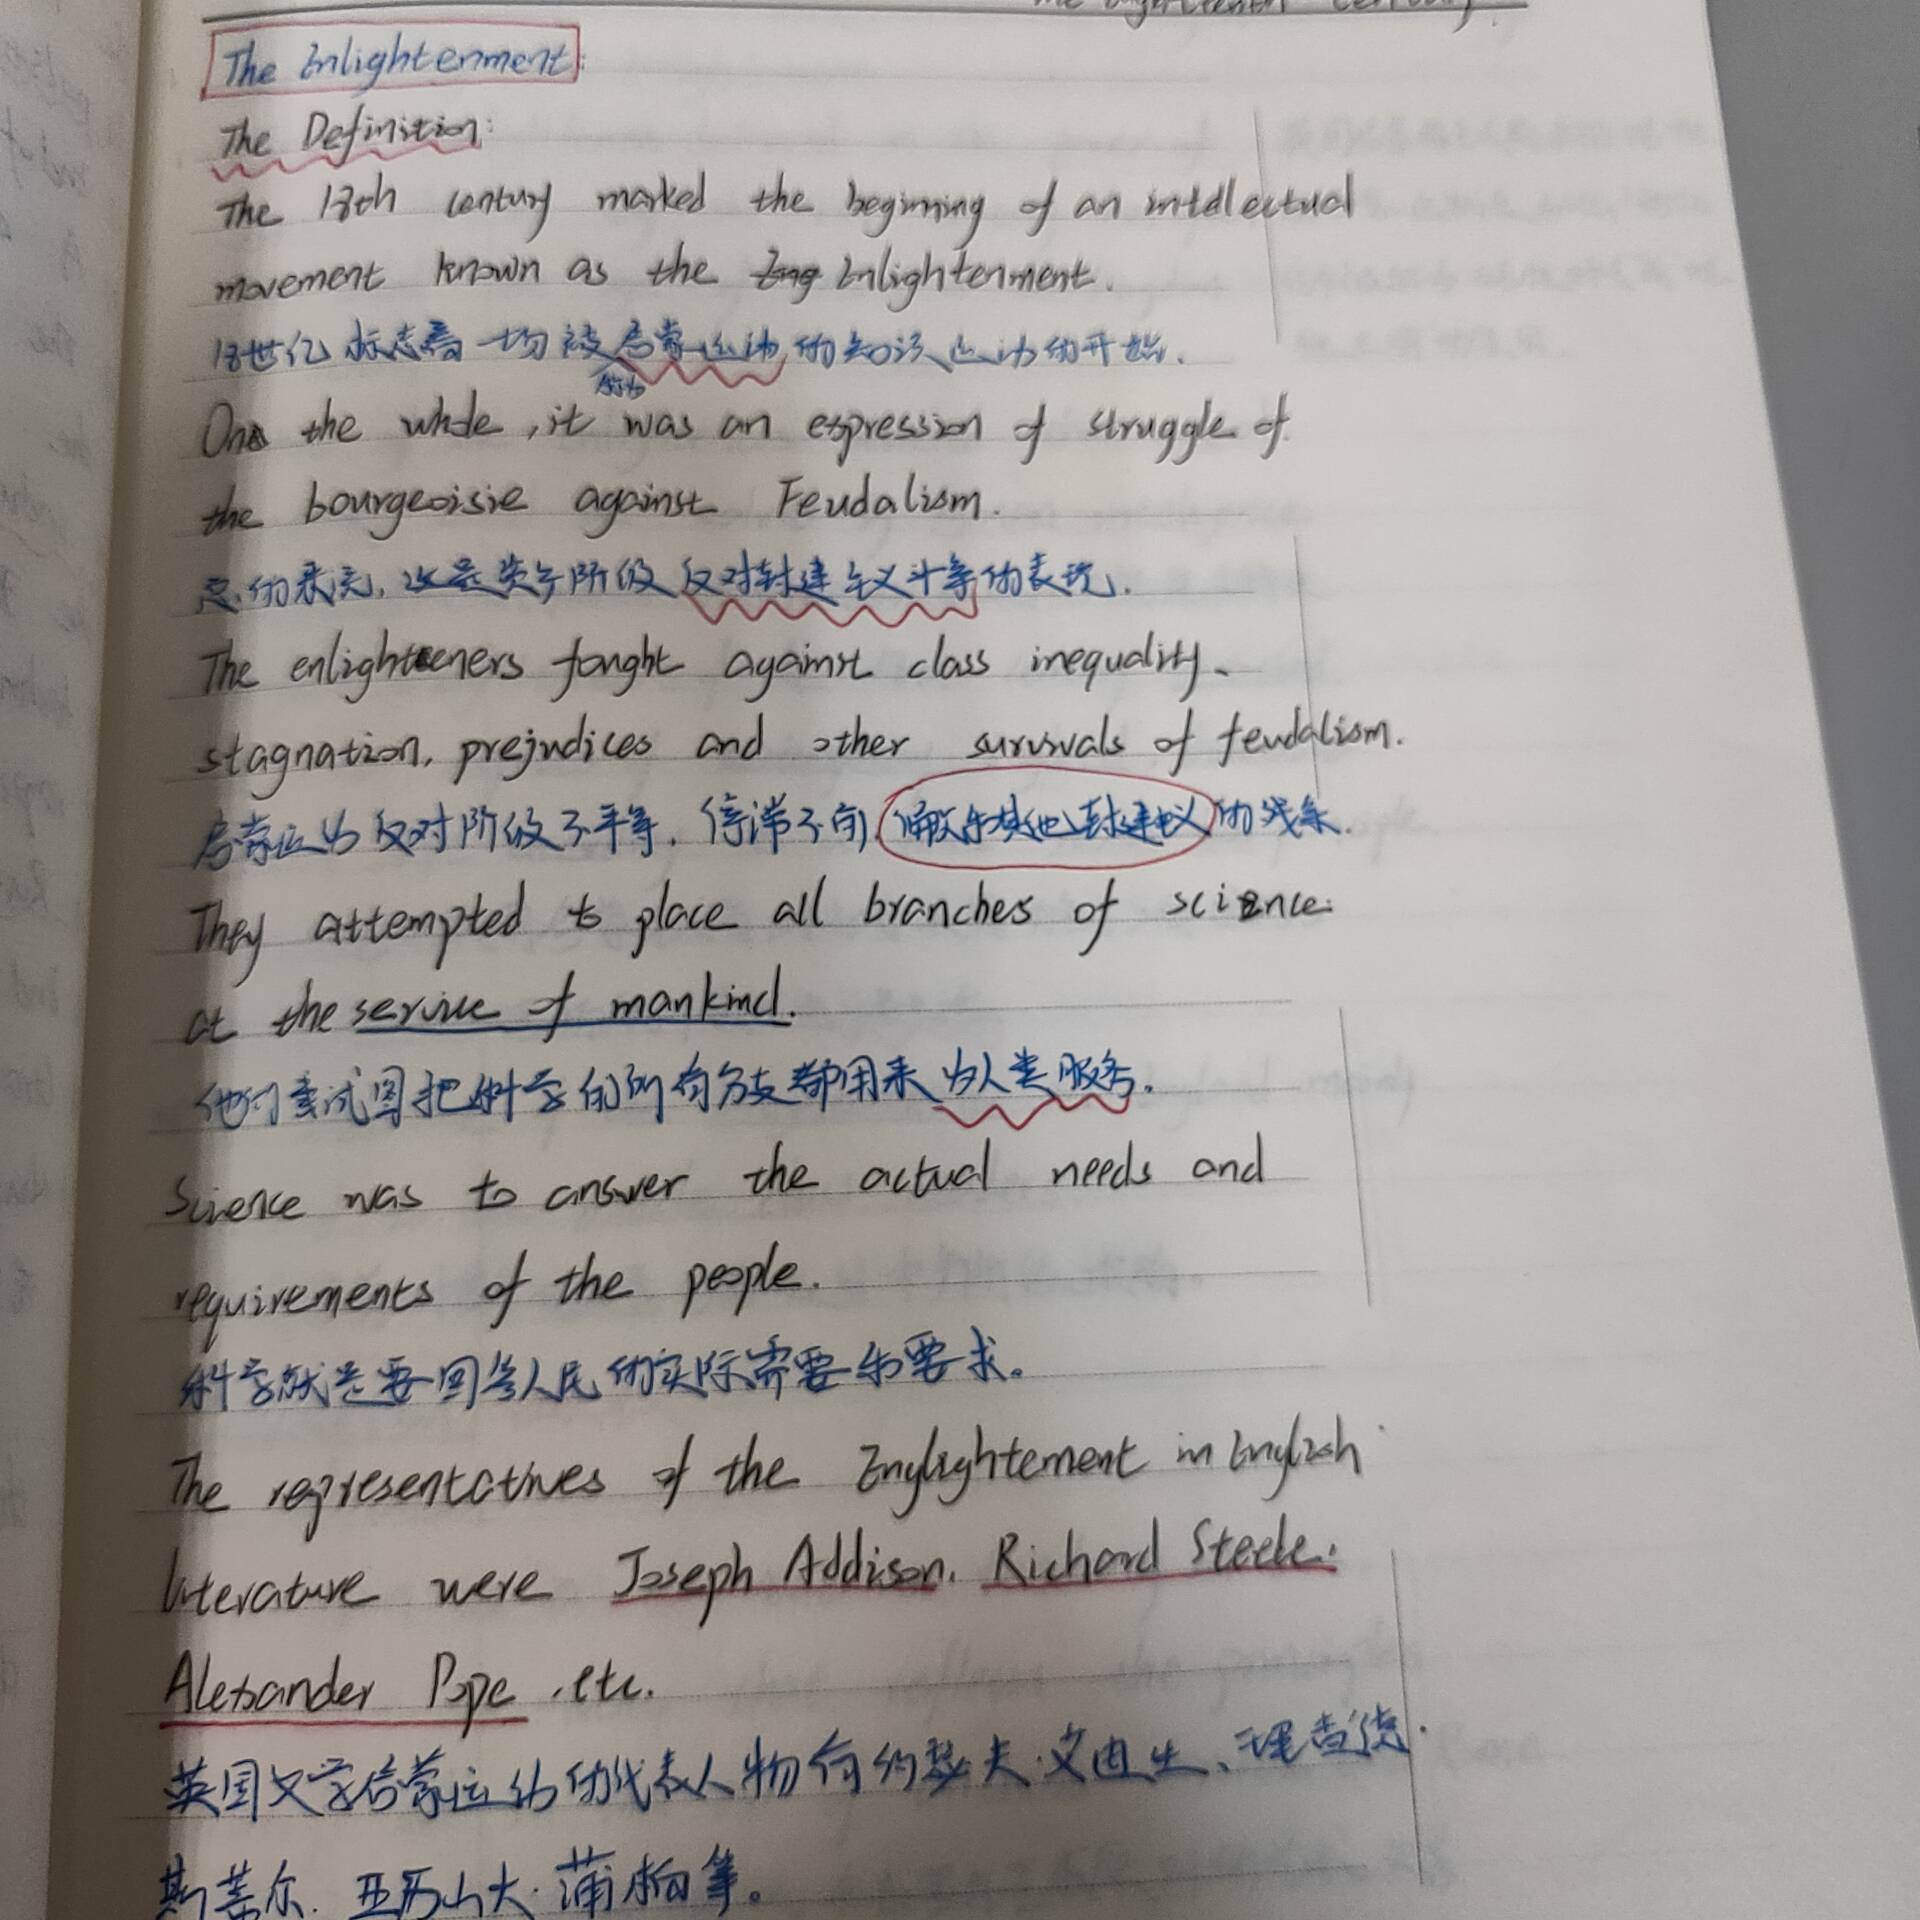 The Eighteenth Century.
The Enlightenment:
The Definition:
The 18th century marked the beginning of an intellectual
movement known as the Enlightenment.
18世纪标志着一场被称为启蒙运动的知识运动的开始.
On the whole, it was an expression of struggle of
the bourgeoisie against Feudalism.
总的来说, 这是资产阶级反对封建主义斗争的表现.
The enlighteners fought against class inequality.
stagnation, prejudices and other survivals of feudalism.
启蒙运动反对阶级不平等, 停滞不前, 偏敌和其他封建主义的残余.
They attempted to place all branches of science
at the service of mankind.
他们尝试图把科学的所有分支都用来为人类服务.
Science was to answer the actual needs and
requirements of the people.
科学就是要回答人民的实际需要和要求。
The representatives of the Englightement in English
literature were Joseph Addison, Richard Steele.
Alexander Pope, etc.
英国文学启蒙运动的代表人物有约瑟夫·艾迪生、理查德·
斯蒂尔、亚历山大·蒲柏等。